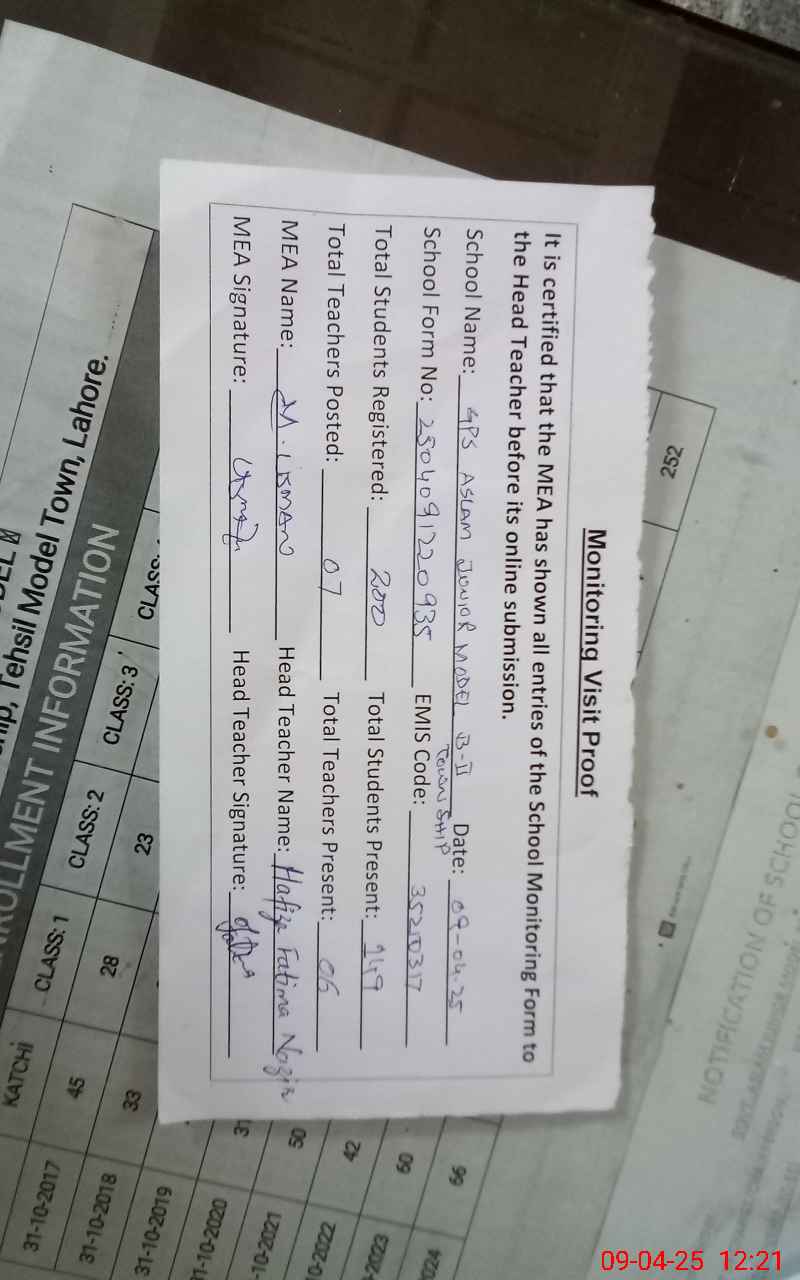 Monitoring Visit Proof
It is certified that the MEA has shown all entries of the School Monitoring Form to
the Head Teacher before its online submission.
School Name: GPS ASLAM JUNIOR MODEL B-II Date: 09-04-25
TOWN SHIP
School Form No: 2504091220935 EMIS Code: 35210317
Total Students Registered: 200 Total Students Present: 149
Total Teachers Posted: 07 Total Teachers Present: 06
MEA Name: M. Head Teacher Name: Hafiza Fatima Nazir
MEA Signature: Head Teacher Signature:
252
Tehsil Model Town, Lahore.
ROLLMENT INFORMATION
KATCHI CLASS: 1 CLASS: 2 CLASS: 3
31-10-2017 45 28 23
31-10-2018 33
31-10-2019
1-10-2020 31
-10-2021 50
0-2022 42
-2023 60
024 66
NOTIFICATION OF SCHOOL
09-04-25 12:21